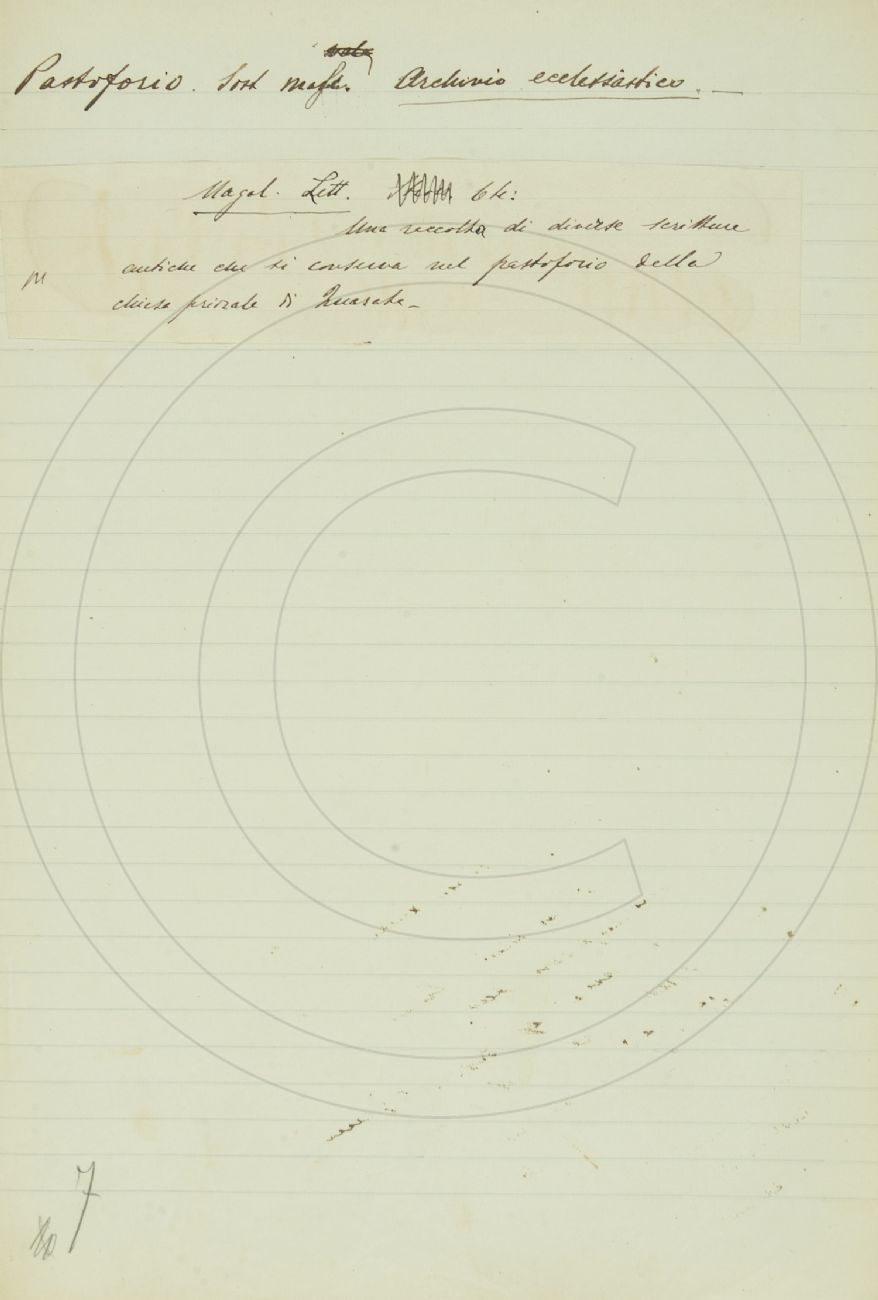 Pastoforio. Sost. masc. Archivio ecclessiastico. —
Magal. Lett. 64:
Una raccolta di diverse scritture
antiche che si conserva nel pastoforio della
chiesa priorale di Quarata –
7